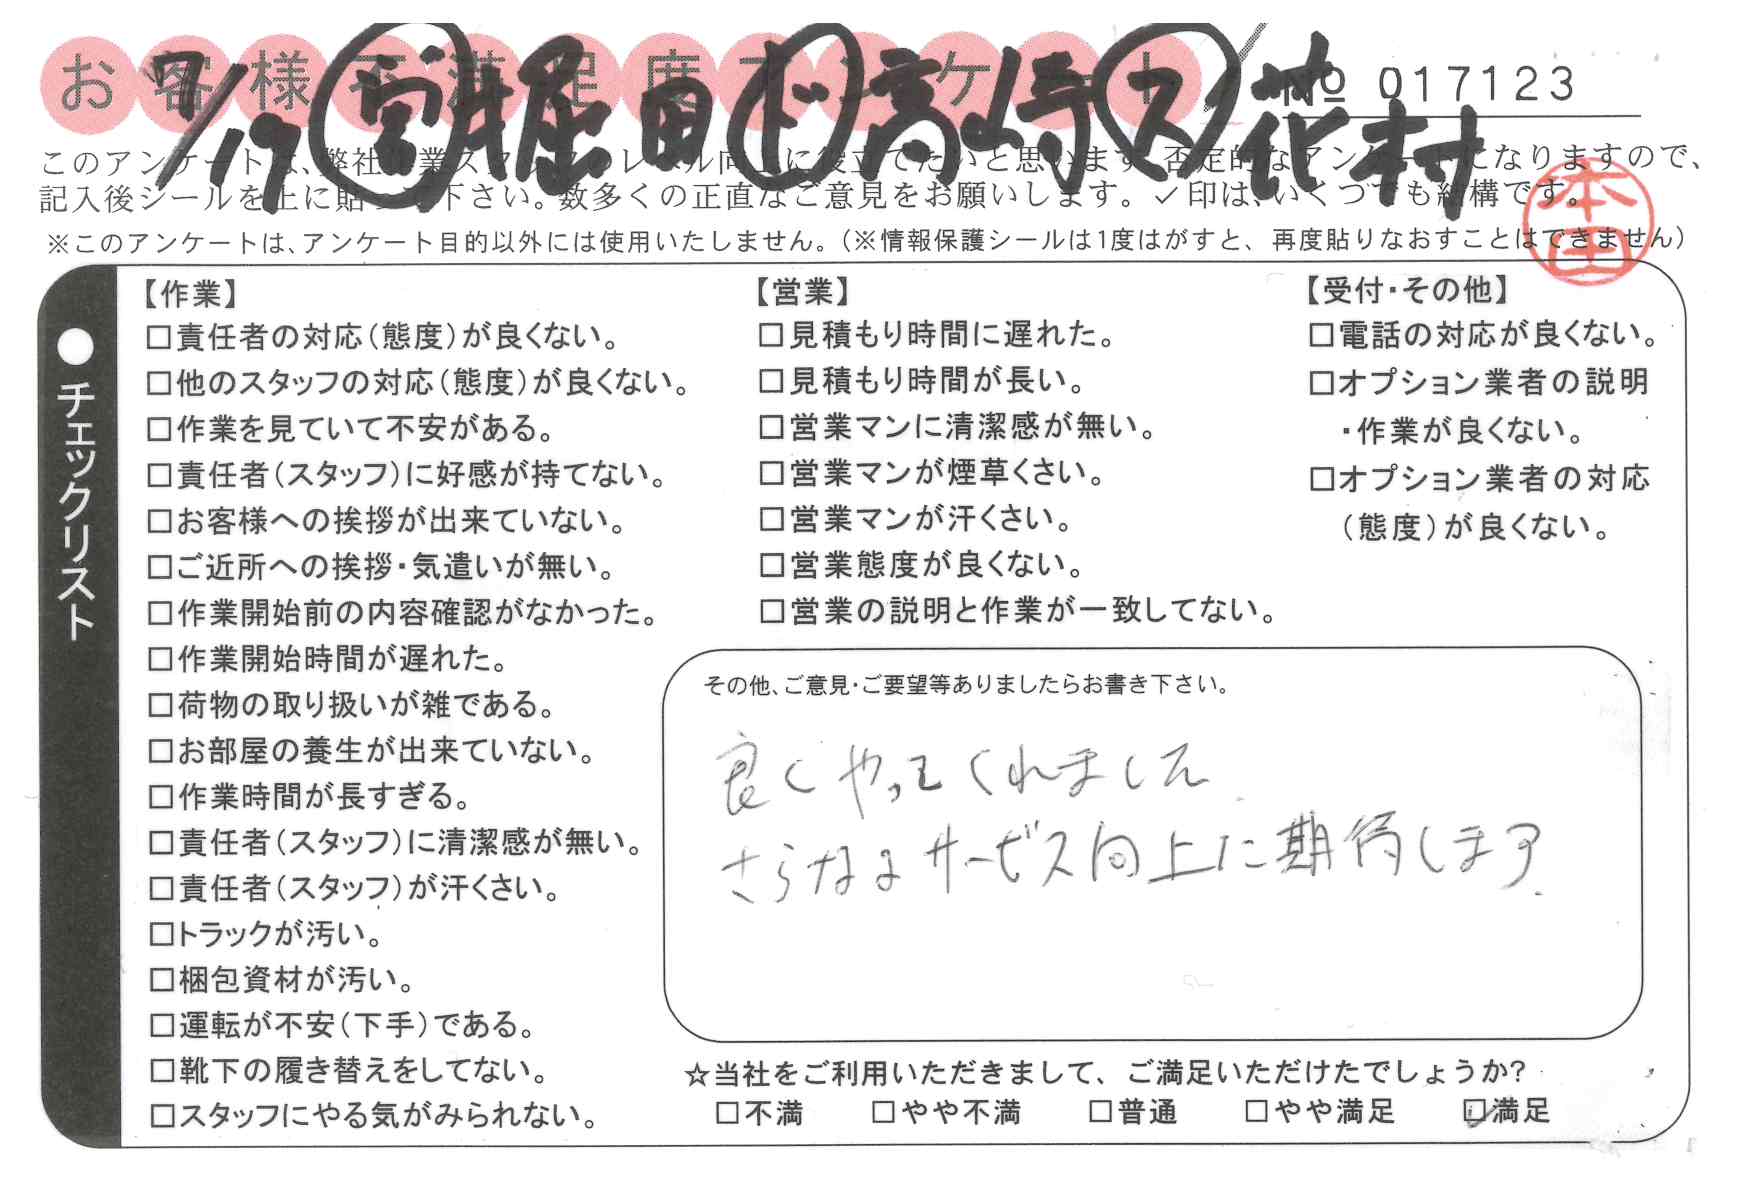 お客様不満足度アンケート
№ 017123
7/17 堀田 ド 高崎 ス 花村
このアンケートは、弊社作業スタッフのレベル向上に役立てたいと思います。否定的なアンケートになりますので、
記入後シールを上に貼って下さい。数多くの正直なご意見をお願いします。✓印は、いくつでも結構です。
本田
※このアンケートは、アンケート目的以外には使用いたしません。(※情報保護シールは1度はがすと、再度貼りなおすことはできません)
●チェックリスト
【作業】
□責任者の対応(態度)が良くない。
□他のスタッフの対応(態度)が良くない。
□作業を見ていて不安がある。
□責任者(スタッフ)に好感が持てない。
□お客様への挨拶が出来ていない。
□ご近所への挨拶・気遣いが無い。
□作業開始前の内容確認がなかった。
□作業開始時間が遅れた。
□荷物の取り扱いが雑である。
□お部屋の養生が出来ていない。
□作業時間が長すぎる。
□責任者(スタッフ)に清潔感が無い。
□責任者(スタッフ)が汗くさい。
□トラックが汚い。
□梱包資材が汚い。
□運転が不安(下手)である。
□靴下の履き替えをしてない。
□スタッフにやる気がみられない。
【営業】
□見積もり時間に遅れた。
□見積もり時間が長い。
□営業マンに清潔感が無い。
□営業マンが煙草くさい。
□営業マンが汗くさい。
□営業態度が良くない。
□営業の説明と作業が一致してない。
【受付・その他】
□電話の対応が良くない。
□オプション業者の説明
・作業が良くない。
□オプション業者の対応
(態度)が良くない。
その他、ご意見・ご要望等ありましたらお書き下さい。
良くやってくれました
さらなるサービス向上に期待します.
☆当社をご利用いただきまして、ご満足いただけたでしょうか?
□不満 □やや不満 □普通 □やや満足 ☑満足